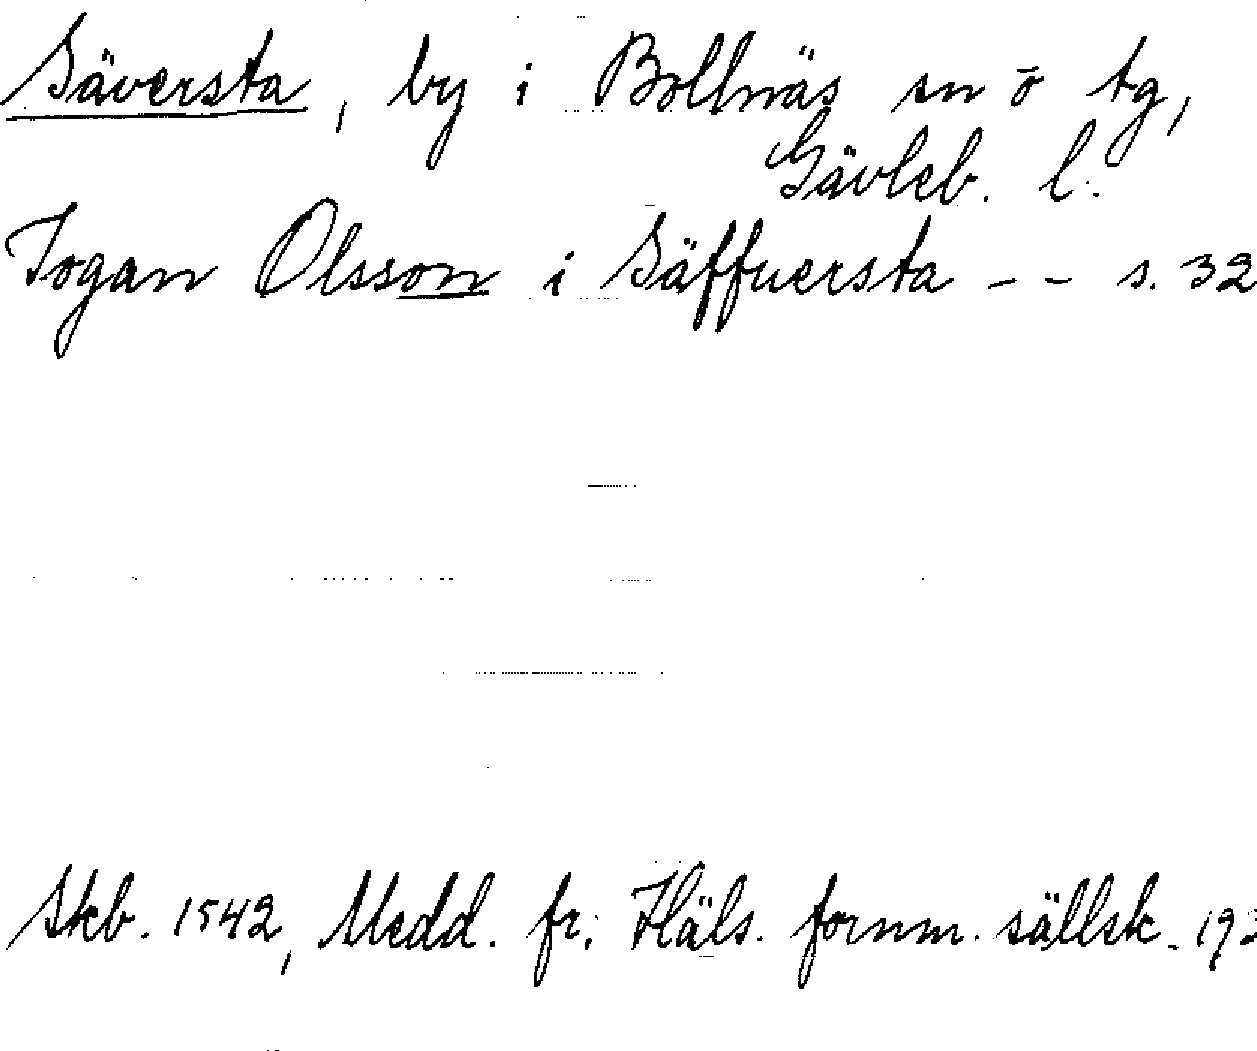 Säversta, by i Bollnäs sn o tg,
Gävleb. l.
Jogan Olsson i Säffuersta - - s. 32
Skb. 1542, Medd. fr. Häls. fornm. sällsk. 193